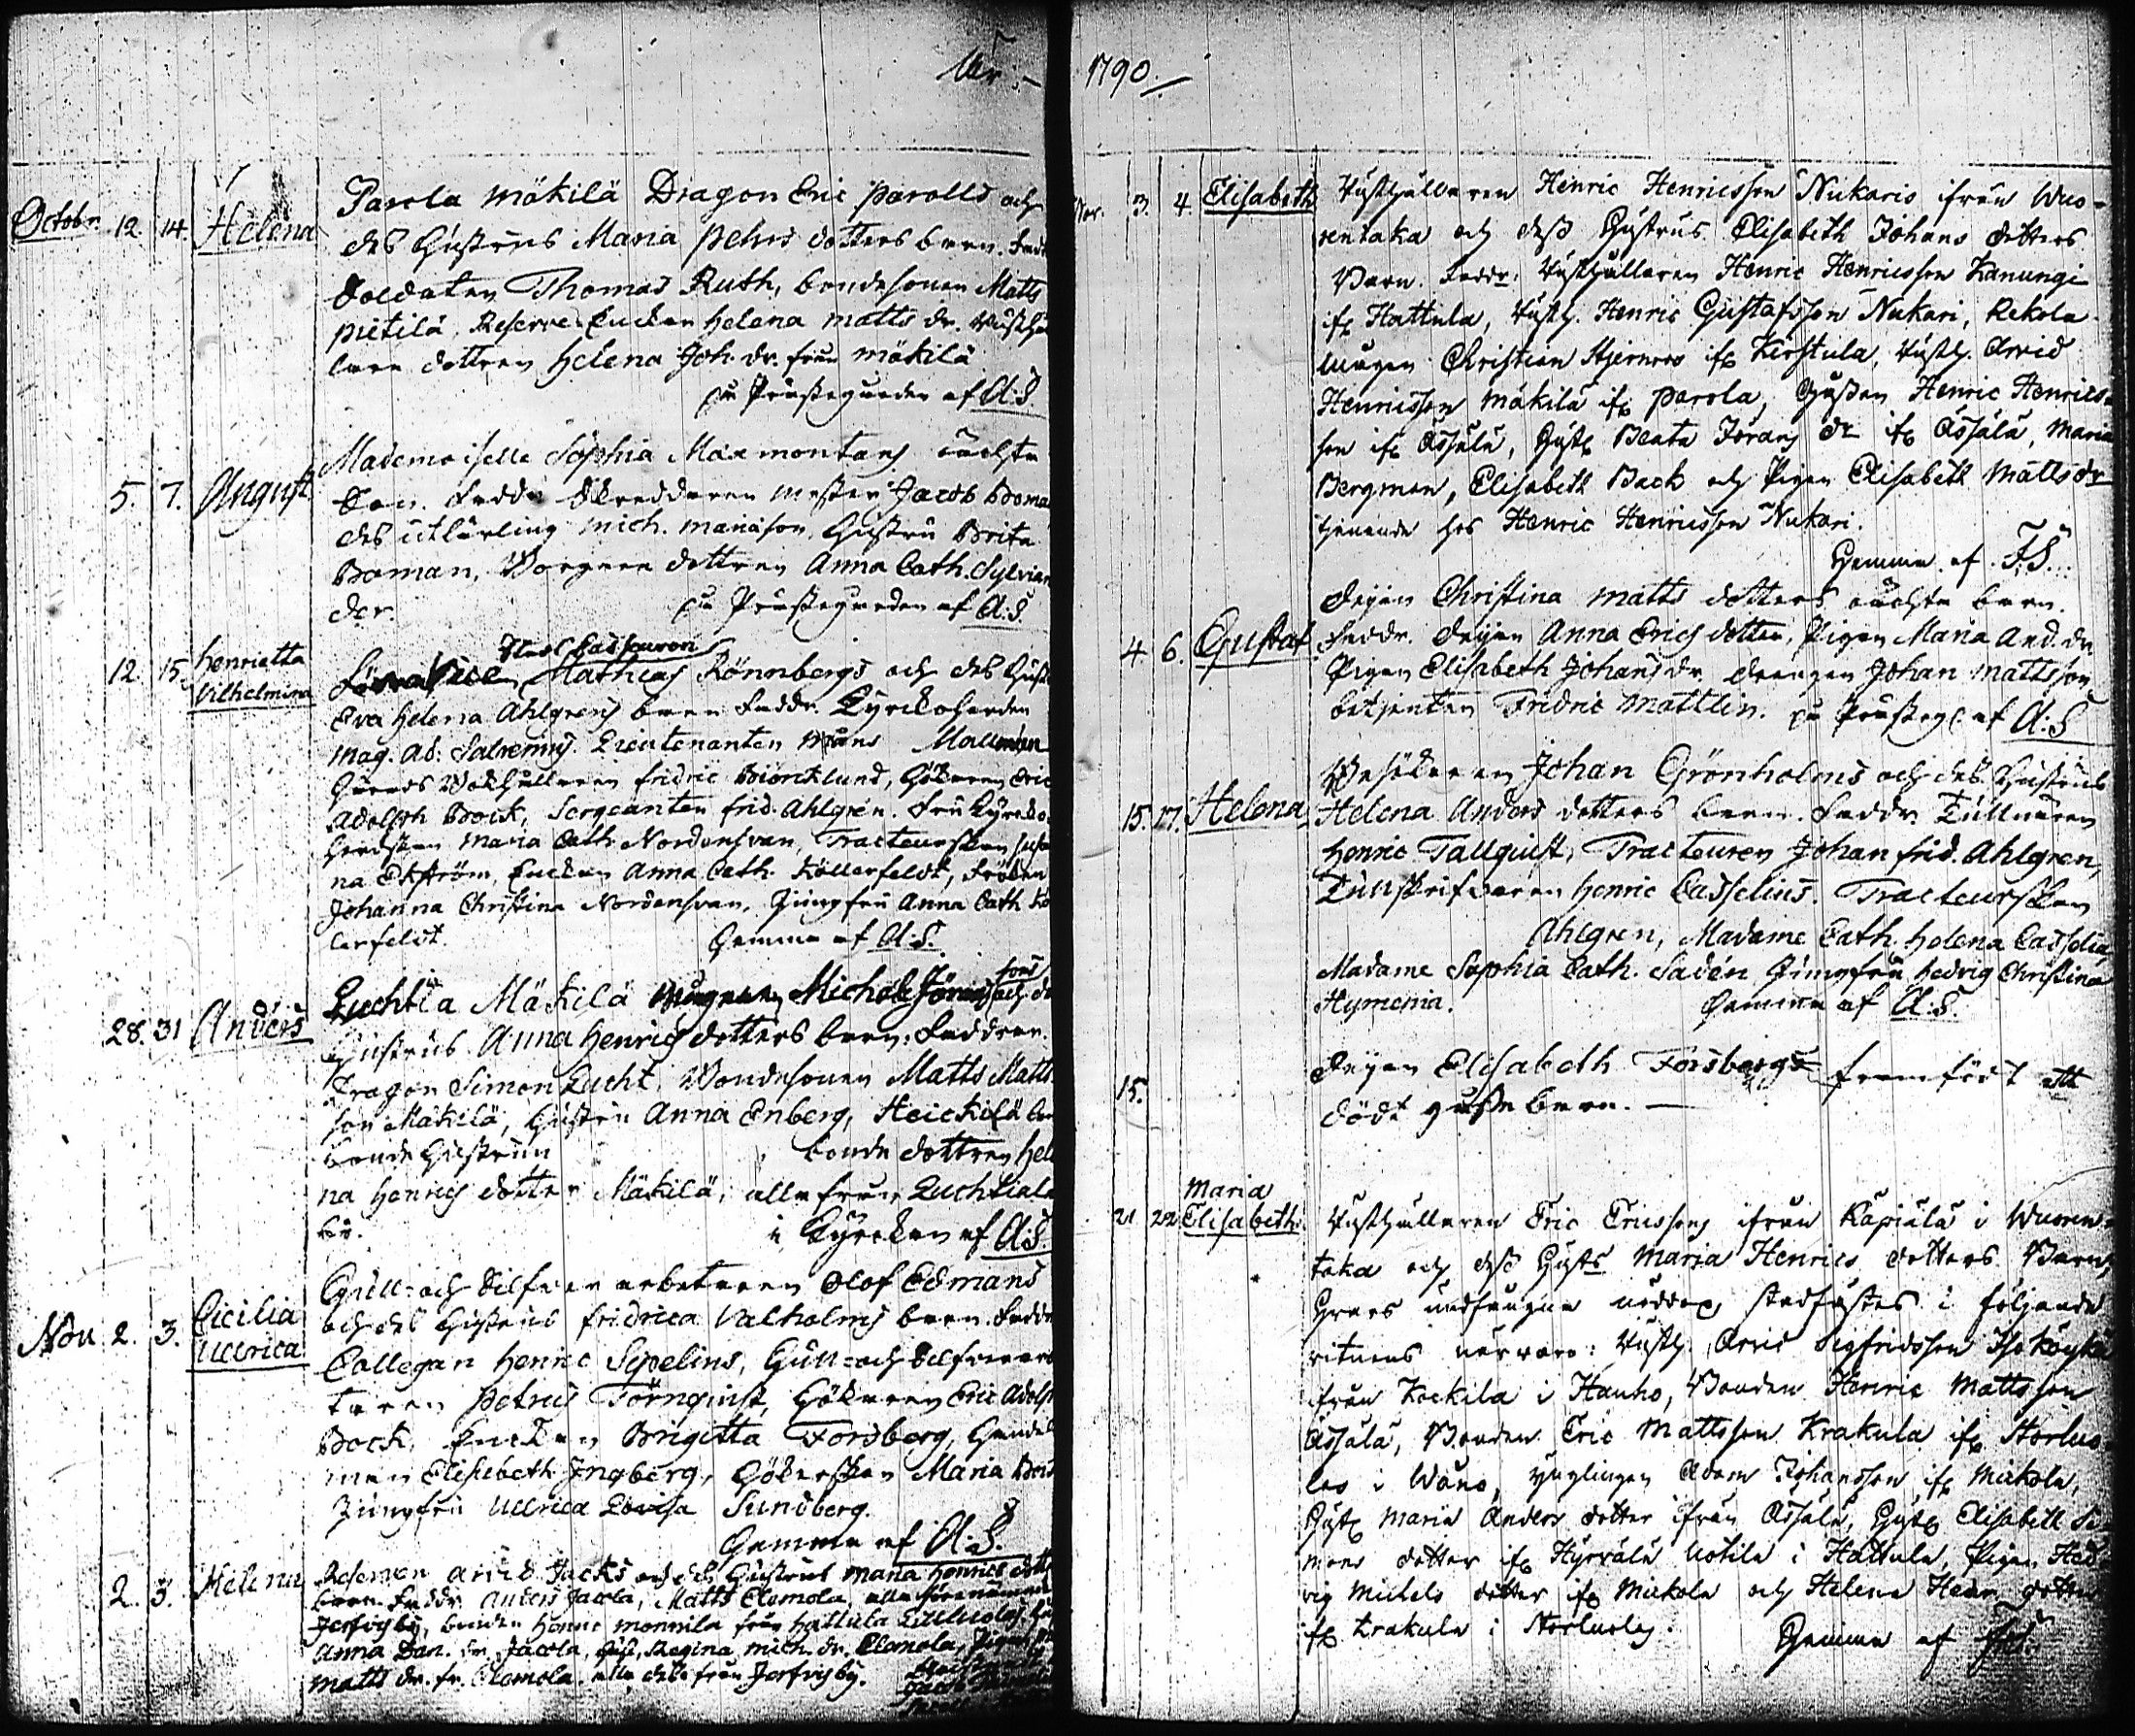 År
Octobr. 12. 14. Helena
Parola Mäkilä Dragon Eric Parolls och
des Hustrus Maria Pehrs dotters barn. Fadd
Soldaten Thomas Ruth, bondesonen Matts
Pietilä, Reserve Enckan Helena Matts dr.
dottren Helena Joh. dr. från Mäkilä
på Prästegården af A:S
5. 7. August
Mademoiselle Sophia Maxmontans oächta
Son. Faddr. Skreddaren Mester Jacob Boma
des utlärling Mich. Mariæson, Hustru Brita
Boman, Borgare dottren Anna Cath. Sylvan
der. på Prästegården af A.S.
12. 15. Henrietta Vilhelmina
Mathias Rönnbergs och des Hust
Eva Helena Ahlgrens barn Faddr. Kyrckoherden
Mag. Ad: Salvenius. Lieutenanten Måns
Bokhållaren Fridric Biörcklund, Hökaren Eric
Adolph Bock, Sergeanten Frid. Ahlgren. Fru Kyrcko
herdskan Maria Cath. Nordensvan, Tracteurskan Susa
na Ekström, Enckan Anna Cath. Köllerfeldt, Fröken
Johanna Christina Nordensvan, Jungfru Anna Cath Kö
lerfeldt. Hemma af A:S.
28. 31 Anders
Luchtia Mäkilä Michels Jörans sons och des
Hustrus Anna Henrics dotters barn: Faddrar.
Dragon Simon Lucht, Bondesonen Matts Matts
son Mäkilä, Hustru Anna Enberg, Heickilä
bonde Hustrun bonde dottren Hele
na Henrics dotter Mäkilä, alla från Luchtiala
by. i Kyrckan af A:S.
Nov 2. 3. Cicilia Ullrica
Gull- och Silfver arbetaren Olof Edmans
och des Hustrus Fridrica Valholms barn. Faddr
Collegan Henric Sipelius, Gull- och Silfverarbe
taren Petrus Törnquist, Hökaren Eric Adolph
Bock, Enckan Brigitta Forsberg, Handels
man Elisabeth Ingberg, Hökerskan Maria Bock
Jungfru Ullrica Lovisa Sundberg.
Hemma af A.S.
2. 3. Helena
Reserven Arvid Jacks och des Hustrus Maria Henrics dotters
barn. Faddr. Anders Jacola, Matts Elomola, alla
by, bonden Henric från Hattula
Anna Dan. dr. Jacola, Hust. Regina Mich. dr. Elomola, Pigan
Matts dr. fr. Elomola. alla från by.
1790.
Nov. 3. 4. Elisabeth
Rusthållaren Henric Henricsson Nukaris ifrån Wuo-
rentaka och dess Hustrus Elisabeth Johans dotters
Barn. Faddr. Rusthållaren Henric Henricsson Kanungi
ifr. Hattula, Rusth. Henric Gustafsson Nukari, Rekola
Christian Stjernroos ifr. Kerstula, Rusth. Arvid
Henricsson Mäkilä ifr. Parola, Henric Henrics-
son ifr. Ässälä, Hustr. Beata Jörans dr ifr. Ässälä, Maria
Bergman, Elisabeth Back och Pigan Elisabeth Mattsdr
tjenande hos Henric Henricsson Nukari.
Hemma af F.S.
4. 6. Gustaf
Pigan Christina Matts dotters oächta barn.
Faddr. Pigan Anna Erics dotter, Pigan Maria And. dr
Pigan Elisabeth Johans dr, Drängen Johan Mattsson
betjenten Fridric Mattlin. på Prästeg. af A:S
15. 17. Helena
Johan Grönholms och des Hustrus
Helena Anders dotters barn. Faddr. Tullnären
Henric Tallquist, Tracteuren Johan Frid. Ahlgren,
Tullskrifvaren Henric Casselius. Tracteurskan
Ahlgren, Madame Cath. Helena Casselia
Madame Sophia Cath. Sadén, Jungfru Hedvig Christina
Hymenia. Hemma af A.S.
15.
Pigan Elisabeth Forsbergs framfödt ett
dödt gosse barn.
21 22 Maria Elisabeth
Rusthållaren Eric Ericssons ifrån Käpiälä i Wuoren-
taka och dess Hustrs Maria Henrics dotters Barn,
stadfästes i följande
vitnens närvaro: Rusth. Arvid Sigfridsson Iso Köykkä
ifrån Kockila i Hauho, Bonden Henric Mattsson
Ässälä, Bonden Eric Mattsson Krakula ifr. Norluo-
los i Wåno, ynglingen Adam Johansson ifr. Mickola,
Hustr. Maria Anders dotter ifrån Ässälä, Hustr. Elisabeth Si-
mons dotter ifr. Hyrvälä Uotila i Hattula, Pigan Hed-
vig Michels dotter ifr. Mickola och Helena Henr. dotter
ifr. Krakula i Norluolos.
Hemma af